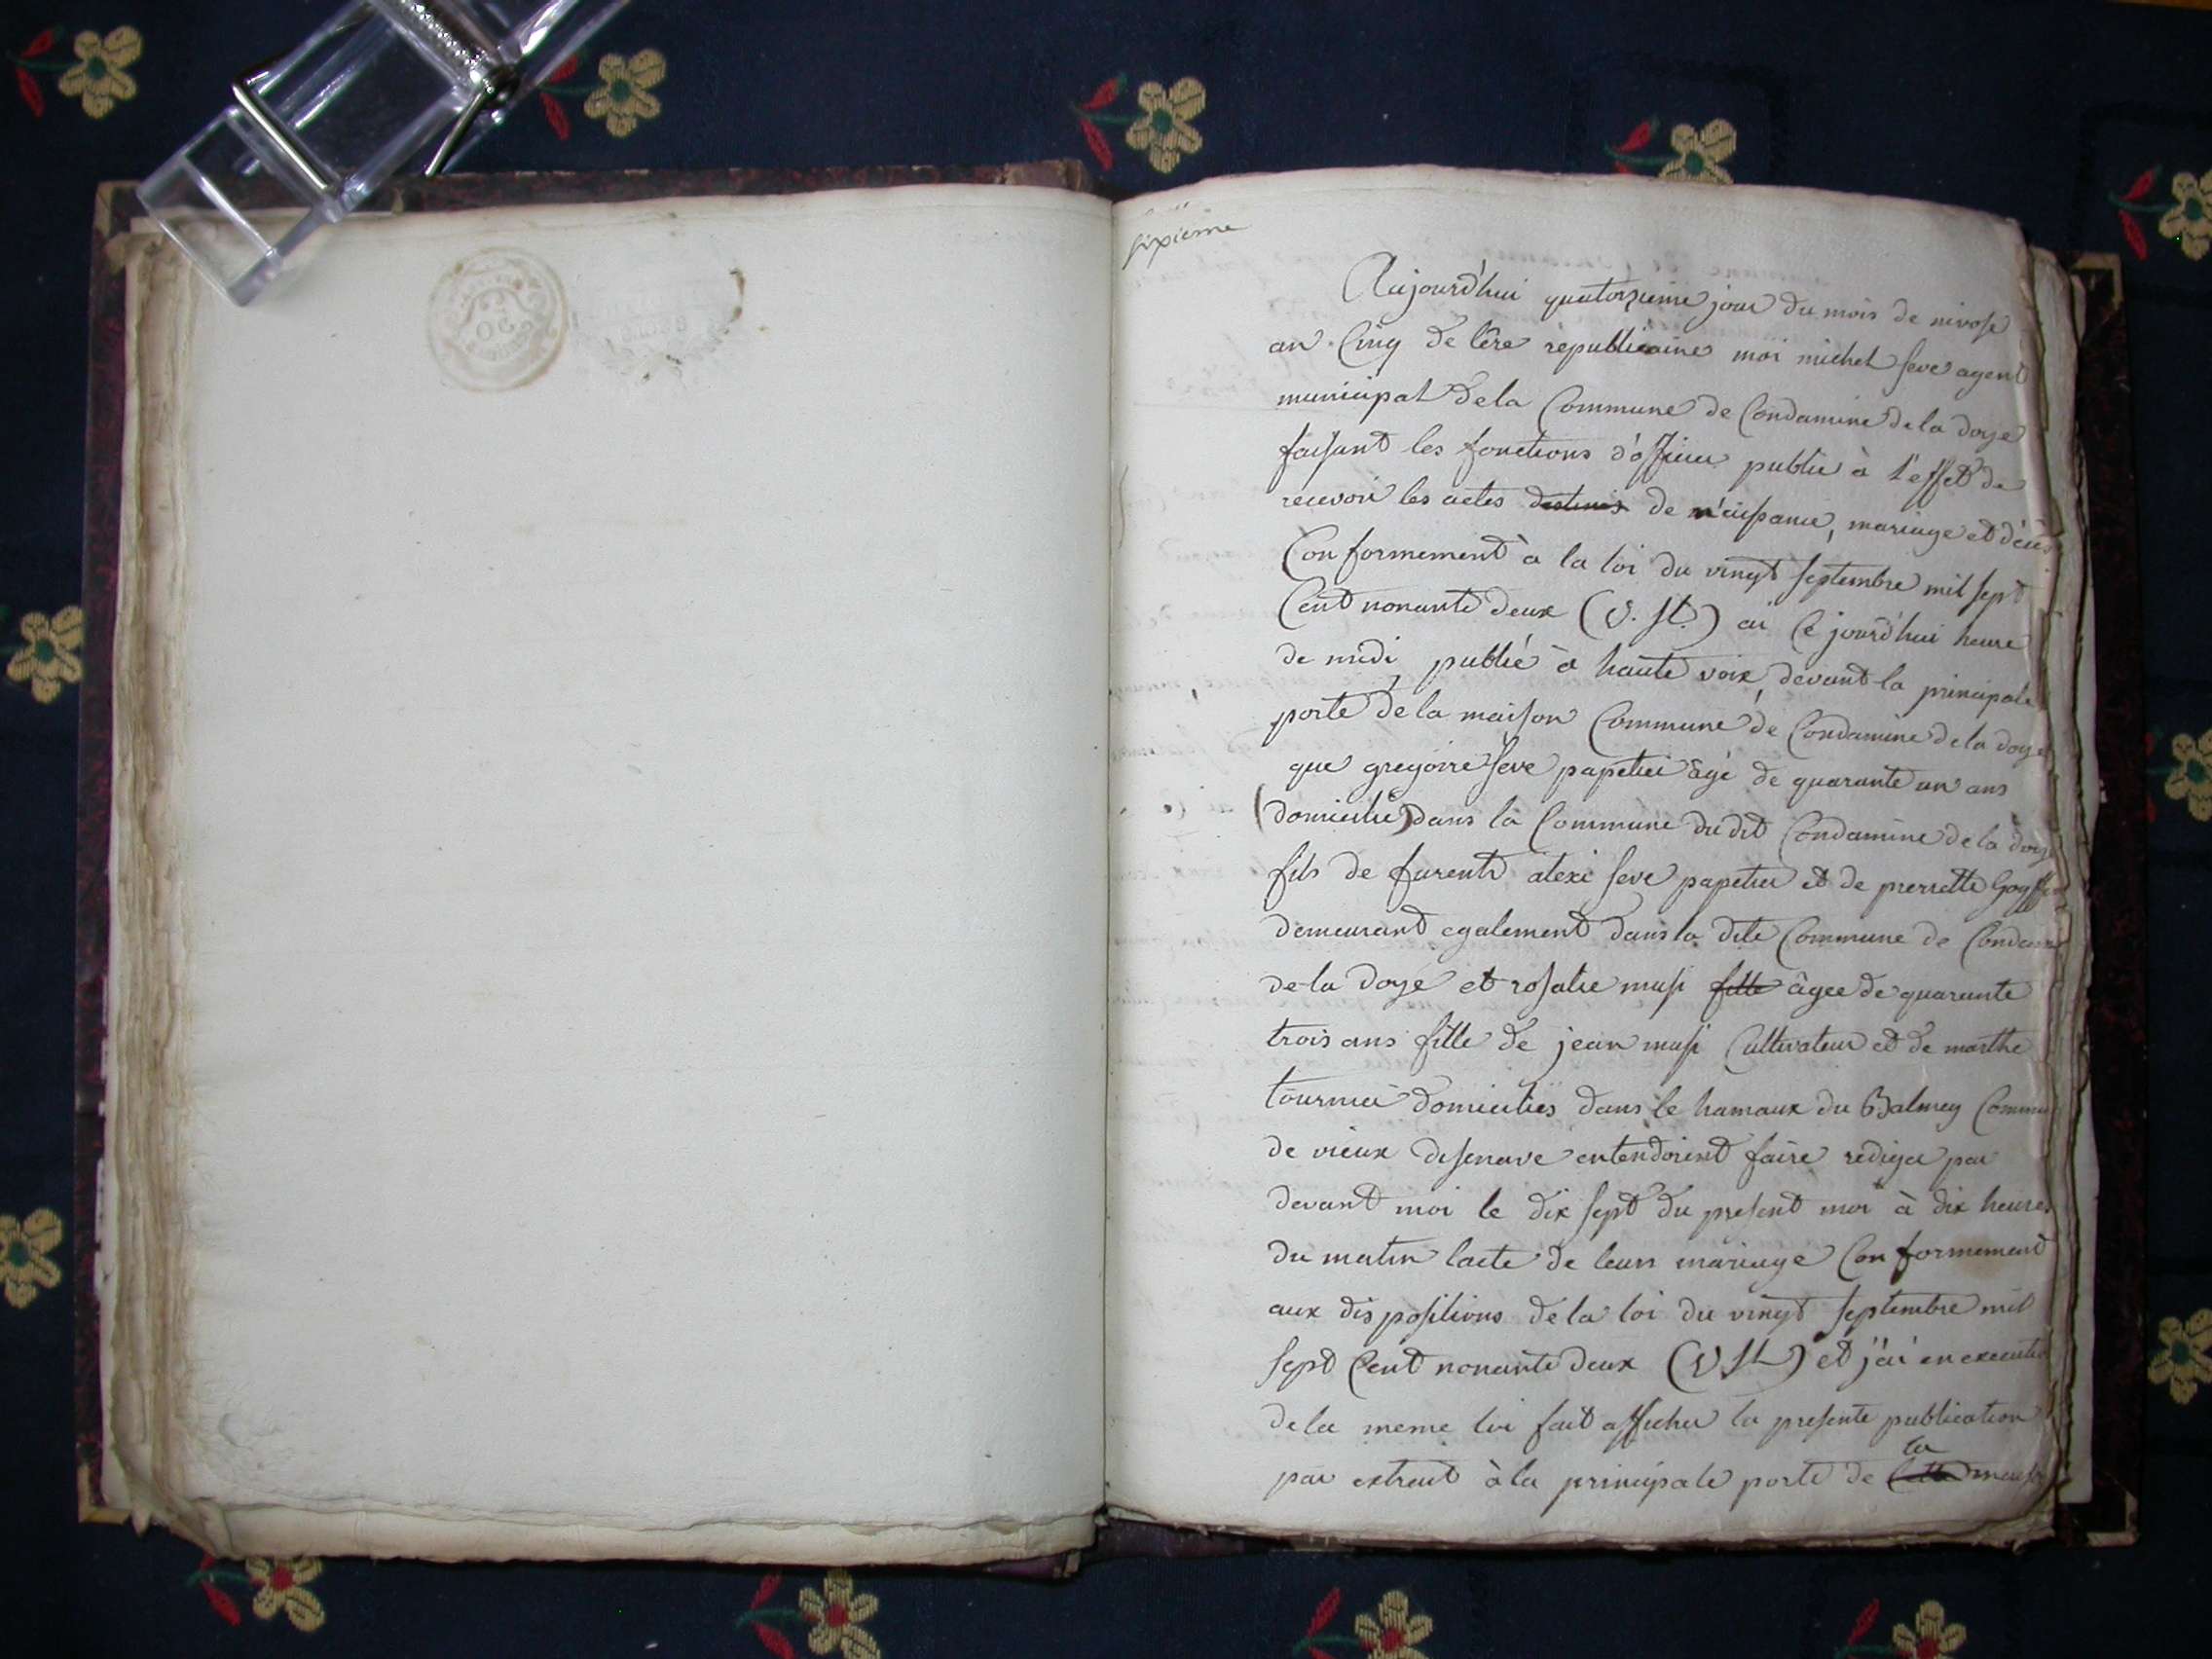 sixième
Aujourd'hui quatorzieme jour du mois de nivose
an Cinq de l'ère républicaine moi michel seve agent
municipal de la Commune de Condamine de la doye
faisant les fonctions d'officier public à l'effet de
recevoir les actes destinés de naissance, mariage et décès
Conformement à la loi du vingt septembre mil sept
Cent nonante deux (V. St.) ai Ce jourd'hui heure
de midi, publié à haute voix, devant la principale
porte de la maison Commune de Condamine de la doye
que gregoire seve papetier âgé de quarante un ans
(domicilié) dans la Commune du dit Condamine de la doye
fils de alexi seve papetier et de pierrette
demeurant egalement dans la dite Commune de
de la doye et rosalie musi fille âgee de quarante
trois ans fille de jean musi Cultivateur et de marthe
tournier domiciliés dans le hamaux du Balmey
de vieux entendoient faire rediger par
devant moi le dix sept du present moi à dix heures
du matin l'acte de leurs mariage Conformement
aux dispositions de la loi du vingt septembre mil
sept Cent nonante deux (V St) et j'ai en execution
de la meme loi fait afficher la presente publication
la
par extrait à la principale porte de Cette maison